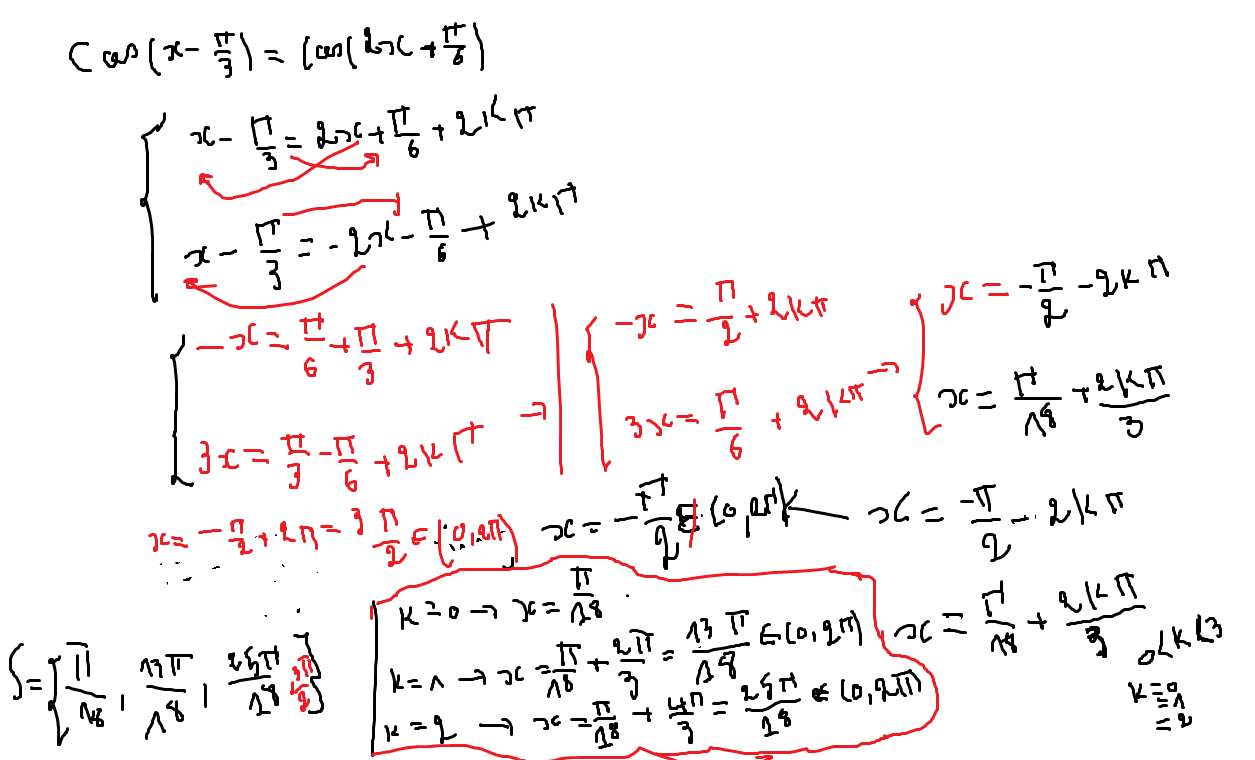 Cos(x - π/3) = Cos(2x + π/6)
x - π/3 = 2x + π/6 + 2Kπ
x - π/3 = -2x - π/6 + 2Kπ
-x = π/6 + π/3 + 2Kπ
3x = π/3 - π/6 + 2Kπ →
-x = π/2 + 2Kπ
3x = π/6 + 2Kπ →
x = -π/2 - 2Kπ
x = π/18 + 2Kπ/3
x = -π/2 + 2π = 3π/2 ∈ (0, 2π)
x = -π/2 ∉ [0, 2π[
x = -π/2 - 2Kπ
x = π/18 + 2Kπ/3
0 < K < 3
K = 0
= 1
= 2
K = 0 → x = π/18
K = 1 → x = π/18 + 2π/3 = 13π/18 ∈ [0, 2π)
K = 2 → x = π/18 + 4π/3 = 25π/18 ∈ (0, 2π)
S = {π/18, 13π/18, 25π/18, 3π/2}